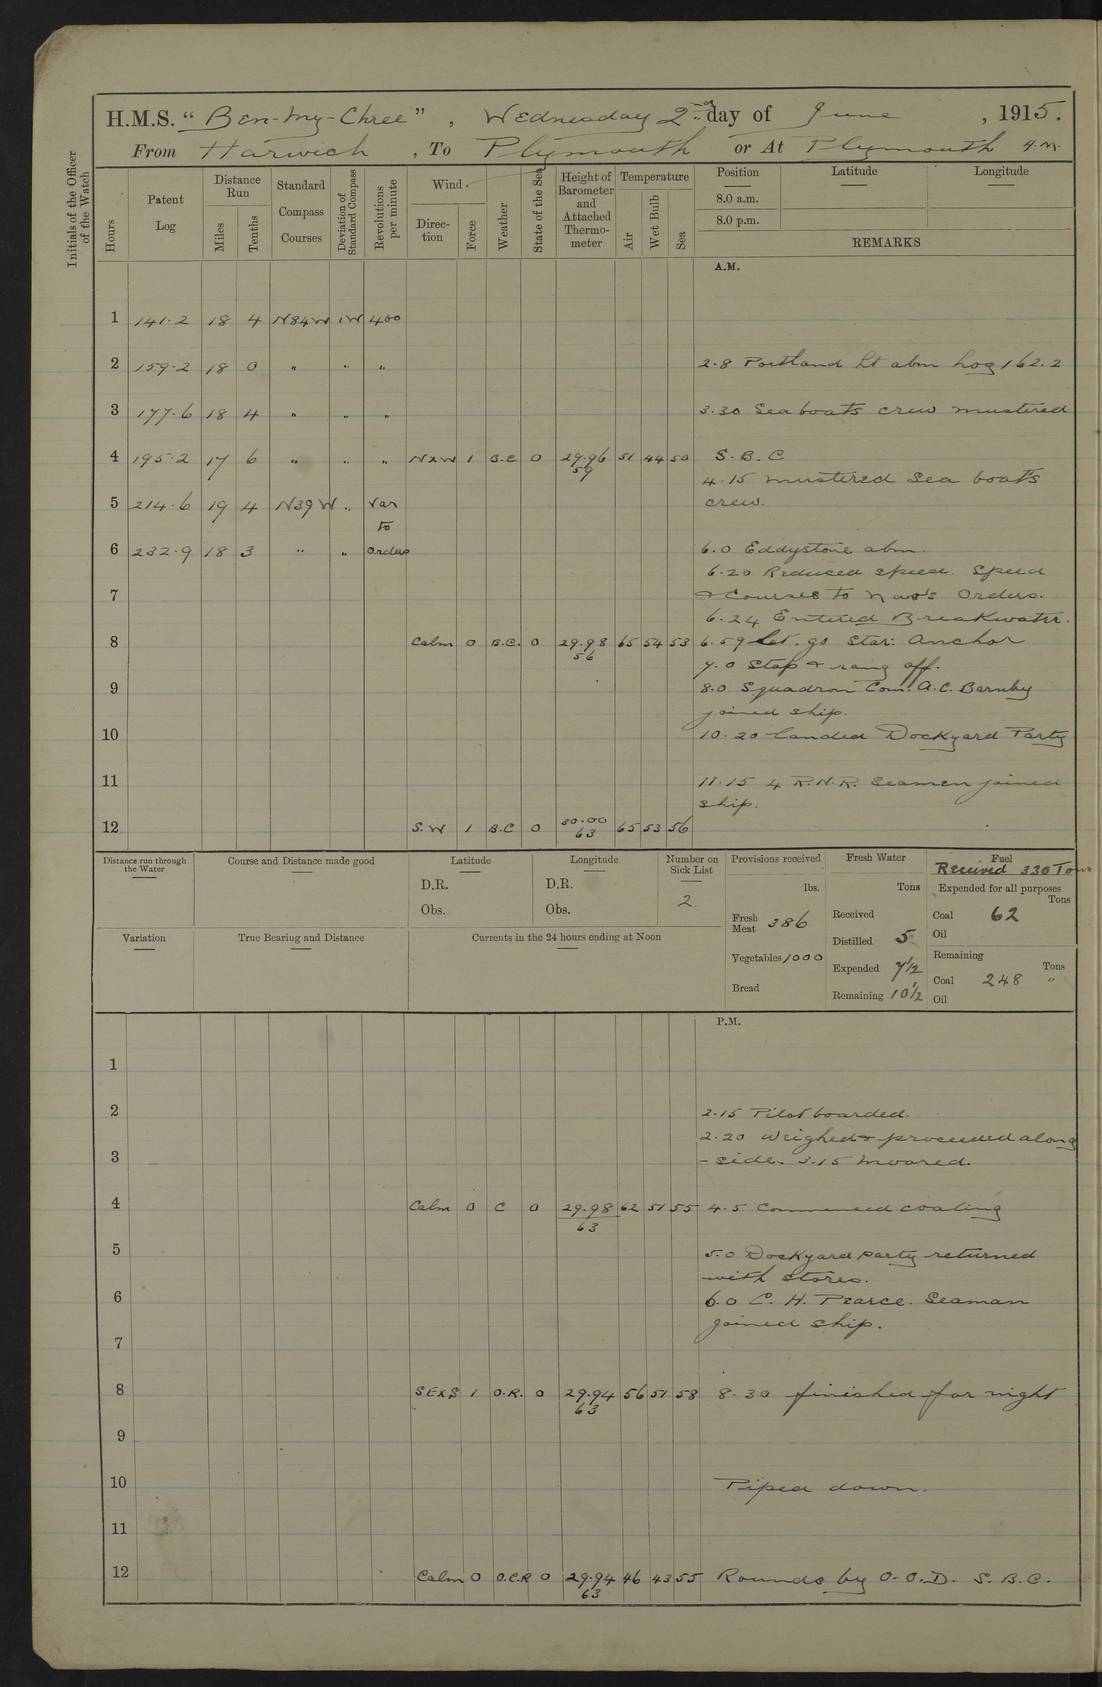 H.M.S. “ Ben-my-Chree ” , Wednesday 2nd day of June , 1915.
From Harwich , To Plymouth or At Plymouth
Initials of the Officer of the Watch
Hours
Patent Log
Distance Run
Miles
Tenths
Standard Compass Courses
Deviation of Standard Compass
Revolutions per minute
Wind.
Direc-tion
Force
Weather
State of the Sea
Height of Barometer and Attached Thermo-meter
Temperature
Air
Wet Bulb
Sea
Position Latitude Longitude
8.0 a.m.
8.0 p.m.
REMARKS
A.M.
1 141.2 18 4 N84W 1W 400
2 159.2 18 0 " " " 2.8 Portland Lt abm Log 162.2
3 177.6 18 4 " " " 3.30 Sea boats crew mustered
4 195.2 17 6 " " " NxW 1 B.C 0 29.96 51 44 50 S.B.C
59
4.15 mustered Sea boat's
5 214.6 19 4 N39W " Var crew.
to
6 232.9 18 3 " " Orders 6.0 Eddystone abm.
6.20 Reduced speed. Speed
7 & Courses to Nav's Orders.
6.24 Entered Breakwater.
8 Calm 0 B.C. 0 29.98 65 54 53 6.59 Let go Star: Anchor
56
7.0 Stop & rang off.
9 8.0 Squadron Com: A.C. Barnby
joined ship.
10 10.20 Landed Dockyard Party
11 11.15 4 R.N.R. Seamen joined
ship.
12 S.W 1 B.C 0 30.00 65 53 56
63
Distance run through the Water
Course and Distance made good
Latitude
D.R.
Obs.
Longitude
D.R.
Obs.
Number on Sick List
2
Provisions received
lbs.
Fresh Meat 386
Vegetables 1000
Bread
Fresh Water
Tons
Received
Distilled 5
Expended 7½
Remaining 10½
Fuel
Received 330 Tons
Expended for all purposes
Tons
Coal 62
Oil
Remaining
Tons
Coal 248 "
Oil
Variation
True Bearing and Distance
Currents in the 24 hours ending at Noon
P.M.
1
2 2.15 Pilot boarded.
2.20 Weighed & proceeded along
3 -side. 3.15 Moored.
4 Calm 0 C 0 29.98 62 51 55 4.5 Commenced coaling
63
5 5.0 Dockyard party returned
with stores.
6 6.0 C. H. Pearce. Seaman
joined ship.
7
8 SExS 1 O.R. 0 29.94 56 51 58 8.30 finished for night
63
9
10 Piped down.
11
12 Calm 0 O.C.R 0 29.94 46 43 55 Rounds by O.O.D. S.B.C.
63